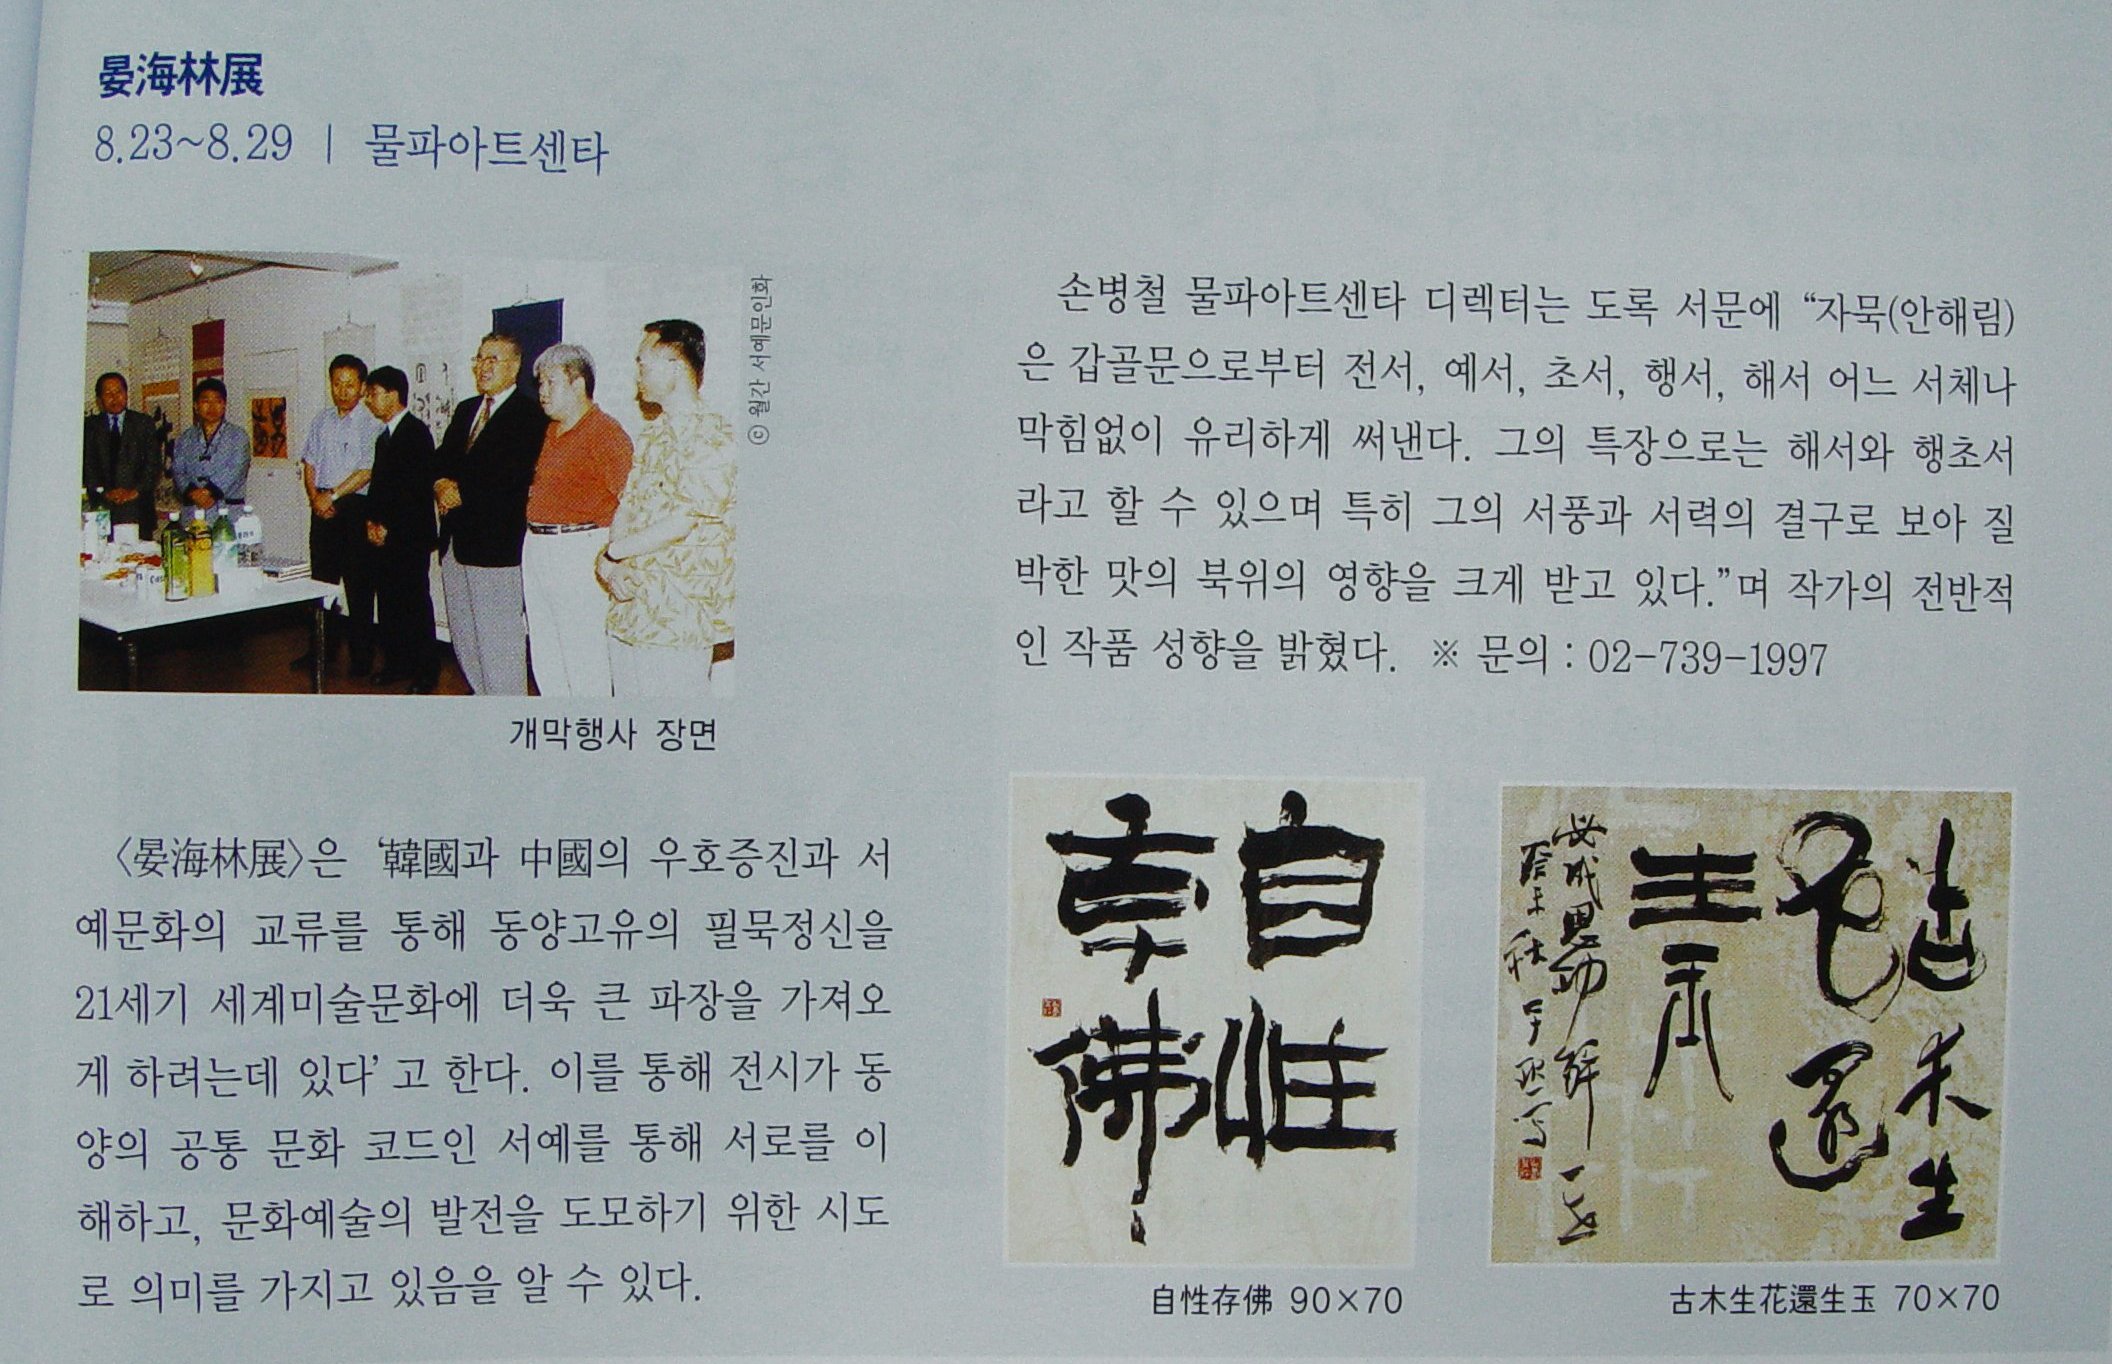 晏海林展
8.23~8.29 | 물파아트센타
ⓒ 월간 서예문인화
개막행사 장면
〈晏海林展〉은 ‘韓國과 中國의 우호증진과 서
예문화의 교류를 통해 동양고유의 필묵정신을
21세기 세계미술문화에 더욱 큰 파장을 가져오
게 하려는데 있다’고 한다. 이를 통해 전시가 동
양의 공통 문화 코드인 서예를 통해 서로를 이
해하고, 문화예술의 발전을 도모하기 위한 시도
로 의미를 가지고 있음을 알 수 있다.
손병철 물파아트센타 디렉터는 도록 서문에 “자묵(안해림)
은 갑골문으로부터 전서, 예서, 초서, 행서, 해서 어느 서체나
막힘없이 유리하게 써낸다. 그의 특장으로는 해서와 행초서
라고 할 수 있으며 특히 그의 서풍과 서력의 결구로 보아 질
박한 맛의 북위의 영향을 크게 받고 있다.”며 작가의 전반적
인 작품 성향을 밝혔다. ※ 문의 : 02-739-1997
自性
佛
自性存佛 90×70
古木生
花還
生玉
古木生花還生玉 70×70